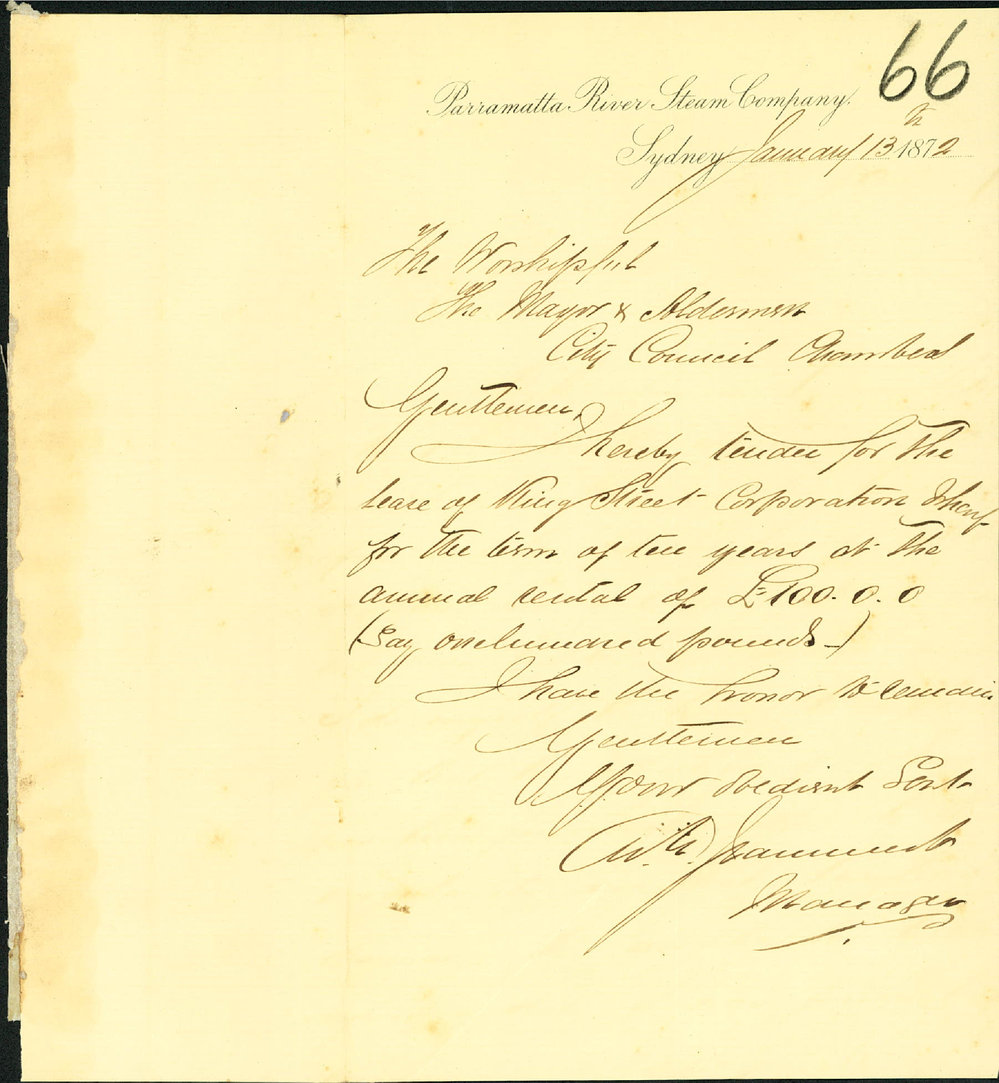 66
Parramatta River Steam Company.
Sydney January 13th 1872
The Worshipful
The Mayor & Aldermen
City Council Chambers
Gentlemen,
I hereby tender for the
lease of King Street Corporation Wharf
for the term of ten years at the
annual rental of £100.0.0
(Say one hundred pounds-)
I have the honor to remain
Gentlemen
Your obedient Servt
Manager